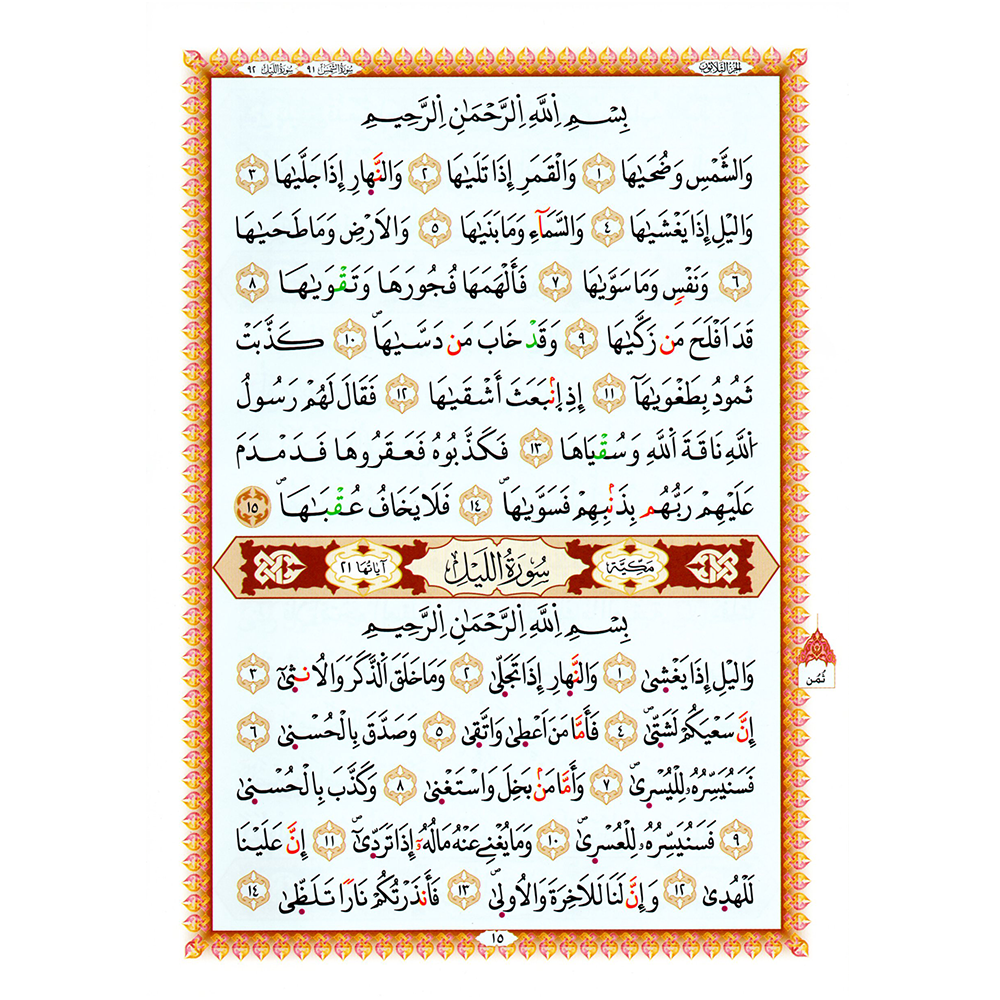 الجزء الثلاثون
سورة الشمس ٩١ سورة الليل ٩٢
بِسْمِ اِللَّهِ اِلرَّحْمَٰنِ اِلرَّحِيمِ
وَالشَّمْسِ وَضُحَيٰهَا ١ وَالْقَمَرِ إِذَا تَلَيٰهَا ٢ وَالنَّهارِ إِذَا جَلَّيٰهَا ٣
وَاليْلِ إِذَا يَغْشَيٰهَا ٤ وَالسَّمَآءِ وَمَا بَنَيٰهَا ٥ وَالَارْضِ وَمَا طَحَيٰهَا
٦ وَنَفْسٖ وَمَا سَوَّيٰهَا ٧ فَأَلْهَمَهَا فُجُورَهَا وَتَقْوَيٰهَا ٨
قَدَ اَفْلَحَ مَن زَكَّيٰهَا ٩ وَقَدْ خَابَ مَن دَسَّيٰهَاۖ ١٠ كَذَّبَتْ
ثَمُودُ بِطَغْوَيٰهَآ ١١ إِذِ اِنۢبَعَثَ أَشْقَيٰهَا ١٢ فَقَالَ لَهُمْ رَسُولُ
اُللَّهِ نَاقَةَ اَللَّهِ وَسُقْيَاهَا ١٣ فَكَذَّبُوهُ فَعَقَرُوهَا فَدَمْدَمَ
عَلَيْهِمْ رَبُّهُم بِذَنۢبِهِمْ فَسَوَّيٰهَاۖ ١٤ فَلَا يَخَافُ عُقْبَٰهَاۖ ١٥
مَكِّيَّة سُورَةُ اللَّيْلِ آيَاتُهَا ٢١
بِسْمِ اِللَّهِ اِلرَّحْمَٰنِ اِلرَّحِيمِ
وَاليْلِ إِذَا يَغْشىٰ ١ وَالنَّهارِ إِذَا تَجَلّىٰ ٢ وَمَا خَلَقَ اَلذَّكَرَ وَالُانثىٰٓ ٣
إِنَّ سَعْيَكُمْ لَشَتّىٰۖ ٤ فَأَمَّا مَنَ اَعْطىٰ وَاتَّقىٰ ٥ وَصَدَّقَ بِالْحُسْنىٰ ٦
فَسَنُيَسِّرُهُۥ لِلْيُسْرىٰۖ ٧ وَأَمَّا مَنۢ بَخِلَ وَاسْتَغْنىٰ ٨ وَكَذَّبَ بِالْحُسْنىٰ
٩ فَسَنُيَسِّرُهُۥ لِلْعُسْرىٰۖ ١٠ وَمَا يُغْنِے عَنْهُ مَالُهُۥٓ إِذَا تَرَدّىٰٓۖ ١١ إِنَّ عَلَيْنَا
لَلْهُدىٰ ١٢ وَإِنَّ لَنَا لَلَاخِرَةَ وَالُاولىٰۖ ١٣ فَأَنذَرْتُكُمْ نَارٗا تَلَظّىٰ ١٤
ثُمُن
١٥